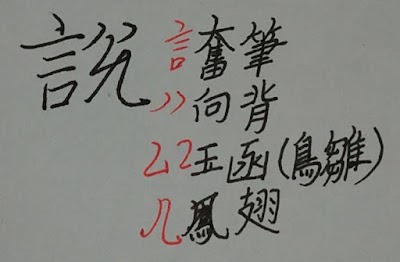 說
言奮筆
ソ向背
厶玉函(鳥雛)
儿鳳翅